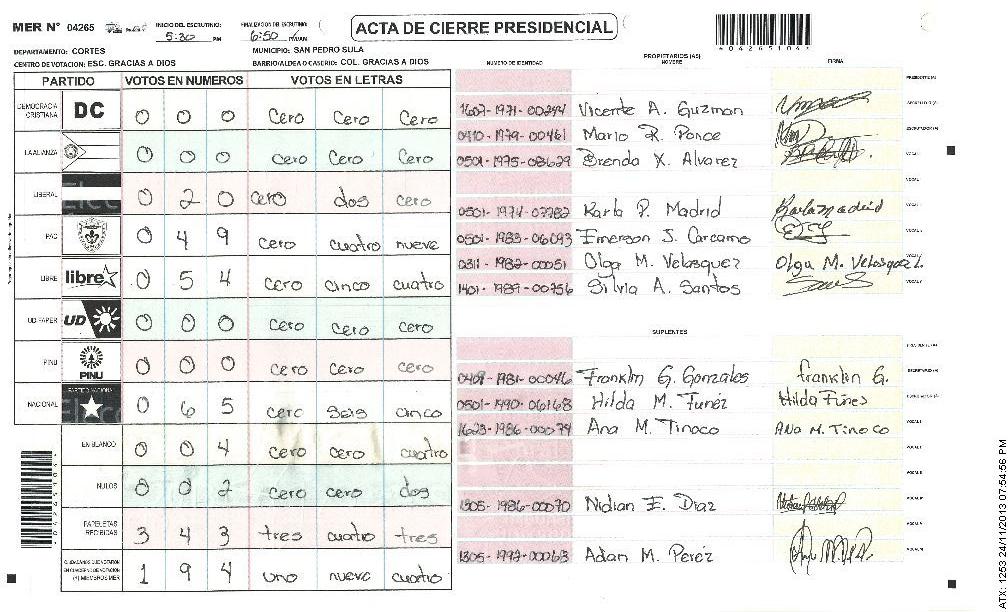 MER Nº 04265 INICIO DEL ESCRUTINIO: 5:30 PM FINALIZACION DEL ESCRUTINIO: 6:50 PM/AM ACTA DE CIERRE PRESIDENCIAL
DEPARTAMENTO: CORTES MUNICIPIO: SAN PEDRO SULA
CENTRO DE VOTACION: ESC. GRACIAS A DIOS BARRIO/ALDEA O CASERIO: COL. GRACIAS A DIOS
PARTIDO VOTOS EN NUMEROS VOTOS EN LETRAS
DEMOCRACIA CRISTIANA DC 0 0 0 Cero Cero Cero
LA ALIANZA 0 0 0 Cero Cero Cero
LIBERAL 0 2 0 Cero dos cero
PAC 0 4 9 cero cuatro nueve
LIBRE libre 0 5 4 cero cinco cuatro
UD FAPER UD 0 0 0 cero cero cero
PINU PINU 0 0 0 cero cero cero
NACIONAL PARTIDO NACIONAL 0 6 5 cero seis cinco
EN BLANCO 0 0 4 cero cero cuatro
NULOS 0 0 2 cero cero dos
PAPELETAS RECIBIDAS 3 4 3 tres cuatro tres
1 9 4 uno nueve cuatro
NUMERO DE IDENTIDAD PROPIETARIOS (AS) NOMBRE FIRMA
PRESIDENTE (A)
1667-1971-00244 Vicente A. Guzman
0410-1979-00461 Mario R. Ponce ESCRUTADOR (A)
0501-1975-08629 Brenda X. Alvarez VOCAL I
0501-1974-07782 Karla P. Madrid Karla madrid
0501-1983-06093 Emerson J. Carcamo
0311-1982-00051 Olga M. Velasquez Olga M. Velasquez L.
1401-1987-00756 Silvia A. Santos
SUPLENTES
PRESIDENTE (A)
0409-1981-00046 Franklin G. Gonzales Franklin G. SECRETARIO (A)
0501-1990-06168 Hilda M. Funez Hilda Fúnes
1623-1986-00079 Ana M. Tinoco ANa M. Tinoco VOCAL I
1305-1986-00070 Nidian E. Diaz
1305-1992-00063 Adan M. Perez
ATX: 1253 24/11/2013 07:54:56 PM